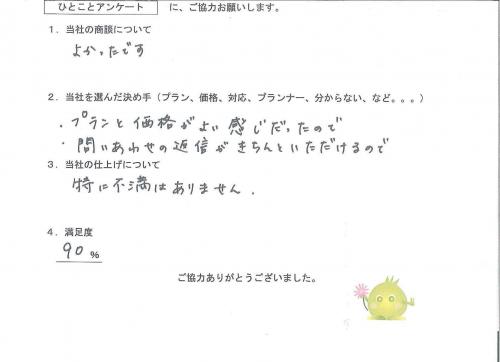 ひとことアンケート に、ご協力お願いします。
１．当社の商談について
よかったです
２．当社を選んだ決め手（プラン、価格、対応、プランナー、分からない、など。。。）
・プランと価格がよい感じだったので
・問いあわせの返信がきちんといただけるので
３．当社の仕上げについて
特に不満はありません．
４．満足度
90 %
ご協力ありがとうございました。